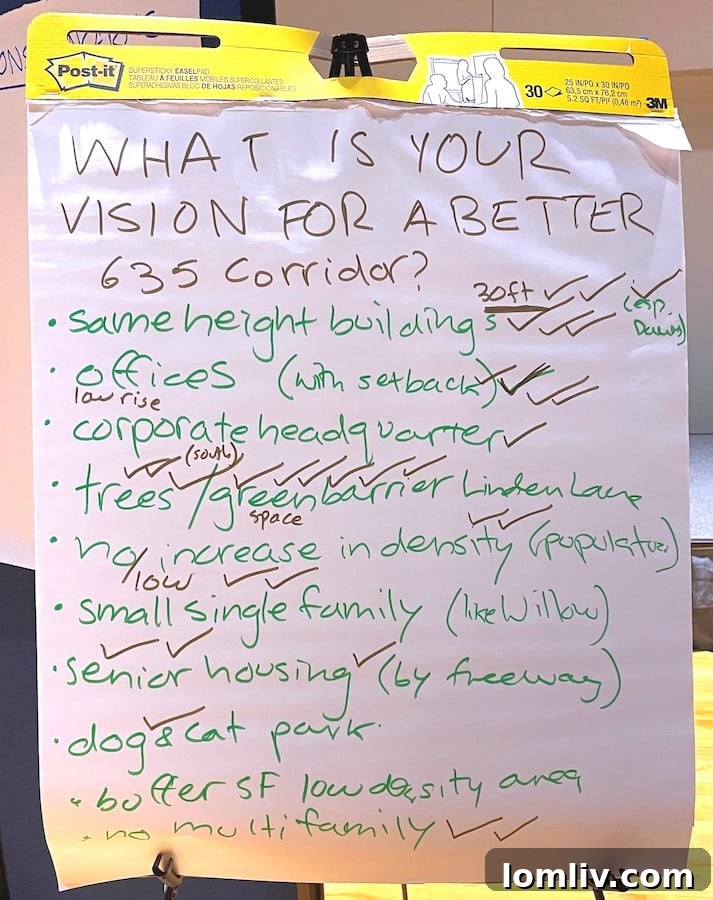 Post-it
SUPERSTICKY EASEL PAD
TABLEAU À FEUILLES MOBILES SUPER COLLANTES
SUPERADHESIVAS BLOC DE HOJAS REPOSICIONABLES
30
25 IN/PO x 30 IN/PO
63,5 cm x 76,2 cm
5.2 SQ FT/PI² (0,48 m²)
3M
WHAT IS YOUR
VISION FOR A BETTER
635 Corridor?
30ft
(esp.
• same height buildings
• offices (with setback)
low rise
• corporate headquarter
(south)
• trees/green barrier Linden Lane
space
• no increase in density
/low
• small single family (like Willow)
• senior housing (by freeway)
• dog & cat park
• buffer SF low density area
• no multifamily
lomliv.com